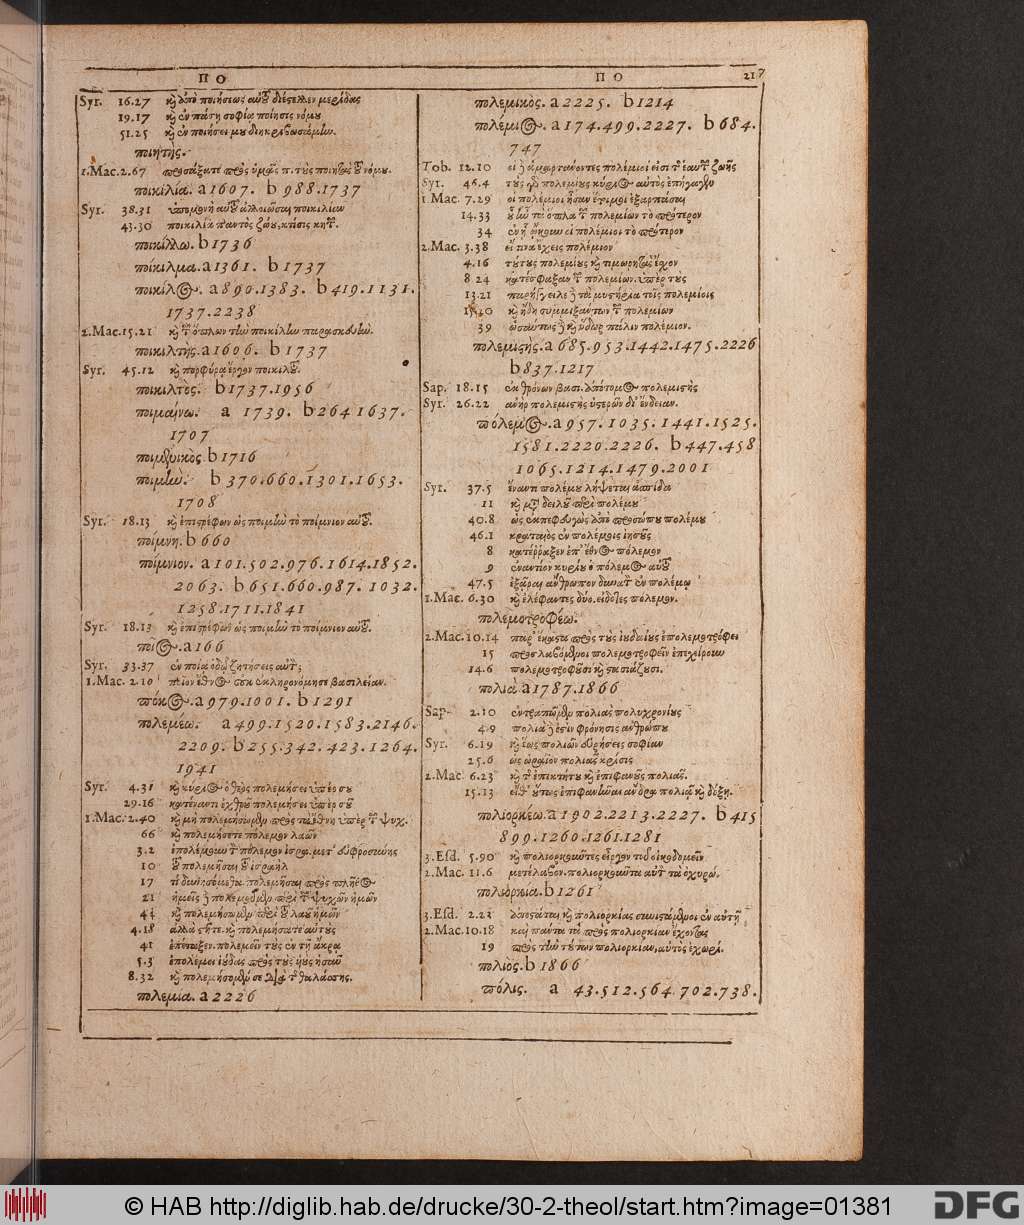 ΠΟ
Syr. 16.27 καὶ ἀπὸ ποιήσεως αὐτοῦ διέστειλεν μερίδας
19.17 καὶ ἐν πάσῃ σοφίᾳ ποίησις νόμου
51.25 καὶ ἐν ποιήσει μου διηκριβωσάμην.
ποιητής.
1.Mac. 2.67 προσάξατε πρὸς ὑμᾶς π. τοὺς ποιητὰς τοῦ νόμου.
ποικιλία. a 1607. b 988.1737
Syr. 38.31 ὑπομονὴ αὐτοῦ ἀλλοιῶσαι ποικιλίαν
43.30 ποικιλία παντὸς ζώου, κτίσις κητ.
ποικίλλω. b 1736
ποίκιλμα. a 1361. b 1737
ποικίλος. a 890.1383. b 419.1131.
1737.2238
2.Mac. 15.21 καὶ τῶν ὅπλων τὴν ποικίλην παρασκευὴν.
ποικιλτὴς. a 1606. b 1737
Syr. 45.12 καὶ πορφύρᾳ ἔργον ποικιλτοῦ.
ποικιλτὸς. b 1737.1956
ποιμαίνω. a 1739. b 264 1637.
1707
ποιμενικὸς. b 1716
ποιμὴν. b 370.660.1301.1653.
1708
Syr. 18.13 καὶ ἐπιστρέφων ὡς ποιμὴν τὸ ποίμνιον αὐτοῦ.
ποίμνη. b 660
ποίμνιον. a 101.502.976.1614.1852.
2063. b 651.660.987.1032.
1258.1711.1841
Syr. 18.13 καὶ ἐπιστρέφων ὡς ποιμὴν τὸ ποίμνιον αὐτοῦ.
ποῖος. a 166
Syr. 33.37 ἐν ποίᾳ ὁδῷ ζητήσεις αὐτὸν;
1.Mac. 2.10 ποῖον ἔθνος οὐκ ἐκληρονόμησε βασιλείαν.
πόκος. a 979.1001. b 1291
πολεμέω. a 499.1520.1583.2146.
2209. b 255.342.423.1264.
1941
Syr. 4.31 καὶ κύριος ὁ θεὸς πολεμήσει ὑπέρ σου
29.16 κατέναντι ἐχθροῦ πολεμήσει ὑπὲρ σοῦ
1.Mac. 2.40 καὶ μὴ πολεμήσωμεν πρὸς τὰ ἔθνη ὑπὲρ τῶν ψυχ.
66 καὶ πολεμήσετε πόλεμον λαῶν
3.2 ἐπολέμουν τὸν πόλεμον ἰσρα. μετ' εὐφροσύνης
10 τοῦ πολεμῆσαι τὸν ἰσραὴλ
17 τί δυνησόμεθα πολεμῆσαι πρὸς πλῆθος
21 ἡμεῖς δὲ πολεμοῦμεν περὶ τῶν ψυχῶν ἡμῶν
43 καὶ πολεμήσωμεν περὶ τοῦ λαοῦ ἡμῶν
4.18 ἀλλὰ στῆτε καὶ πολεμήσατε αὐτοὺς
41 ἐπέταξεν πολεμεῖν τοὺς ἐν τῇ ἄκρᾳ
5.3 ἐπολέμει ἰούδας πρὸς τοὺς υἱοὺς ἠσαῦ
8.32 καὶ πολεμήσομέν σε διὰ τῆς θαλάσσης.
πολεμία. a 2226
ΠΟ 217
πολεμικὸς. a 2225. b 1214
πολέμιος. a 174.499.2227. b 684.
747
Tob. 12.10 οἱ δὲ ἁμαρτάνοντες πολέμιοί εἰσι τῆς ἑαυτῶν ζωῆς
Syr. 46.4 τοὺς γὰρ πολεμίους κύριος αὐτὸς ἐπήγαγεν
1.Mac. 7.29 οἱ πολέμιοι ἦσαν ἕτοιμοι ἐξαρπάσαι
14.33 οὗ ἦν τὰ ὅπλα τῶν πολεμίων τὸ πρότερον
34 ἐν ᾗ ᾤκουν οἱ πολέμιοι τὸ πρότερον
2.Mac. 3.38 εἴ τινα ἔχεις πολέμιον
4.16 τούτους πολεμίους καὶ τιμωρητὰς ἔσχον
8.24 κατέσφαξαν τῶν πολεμίων ὑπὲρ τοὺς
13.21 παρήγγειλε δὲ τὰ μυστήρια τοῖς πολεμίοις
15.20 καὶ ἤδη συμμιξάντων τῶν πολεμίων
39 ὡσαύτως δὲ καὶ ὕδωρ πάλιν πολέμιον.
πολεμιστὴς. a 685.953.1442.1475.2226
b 837.1217
Sap. 18.15 ἐκ θρόνων βασι. ἀπότομος πολεμιστὴς
Syr. 26.22 ἀνὴρ πολεμιστὴς ὑστερῶν δι' ἔνδειαν.
πόλεμος. a 957.1035.1441.1525.
1581.2220.2226. b 447.458
1065.1214.1479.2001
Syr. 37.5 ἔναντι πολέμου λήψεται ἀσπίδα
11 καὶ μετὰ δειλοῦ περὶ πολέμου
40.8 ὡς ἐκπεφευγὼς ἀπὸ προσώπου πολέμου
46.1 κραταιὸς ἐν πολέμοις ἰησοῦς
8 κατέρραξεν ἐπ' ἔθνος πόλεμον
9 ἐναντίον κυρίου ὁ πόλεμος αὐτοῦ
47.5 ἐξᾶραι ἄνθρωπον δυνατὸν ἐν πολέμῳ
1.Mac. 6.30 καὶ ἐλέφαντες δύο. εἰδότες πόλεμον.
πολεμοτροφέω.
2.Mac. 10.14 παρ' ἕκαστα πρὸς τοὺς ἰουδαίους ἐπολεμοτρόφει
15 προσλαβόμενοι πολεμοτροφεῖν ἐπεχείρουν
14.6 πολεμοτροφοῦσι καὶ στασιάζουσι.
πολιὰ. a 1787.1866
Sap. 2.10 ἐντραπῶμεν πολιὰς πολυχρονίους
4.9 πολιὰ δέ ἐστιν φρόνησις ἀνθρώπου
Syr. 6.19 καὶ ἕως πολιῶν εὑρήσεις σοφίαν
25.6 ὡς ὡραῖον πολιαῖς κρίσις
2.Mac. 6.23 καὶ τῆς ἐπικτήτου καὶ ἐπιφανοῦς πολιᾶς.
15.13 εἶθ' οὕτως ἐπιφανῆναι ἄνδρα πολιᾷ καὶ δόξῃ.
πολιορκέω. a 1902.2213.2227. b 415
899.1260.1261.1281
3.Esd. 5.90 καὶ πολιορκοῦντες εἶργον τοῦ οἰκοδομεῖν
2.Mac. 11.6 μετέλαβον πολιορκοῦντα αὐτὸν τὰ ὀχυρώ.
πολιορκία. b 1261
3.Esd. 2.23 ἀποστάται καὶ πολιορκίας συνιστάμενοι ἐν αὐτῇ
2.Mac. 10.18 καὶ πάντα τὰ πρὸς πολιορκίαν ἔχοντας
19 πρὸς τὴν τούτων πολιορκίαν, αὐτὸς ἐχωρί.
πολιὸς. b 1866
πόλις. a 43.512.564.702.738.
© HAB http://diglib.hab.de/drucke/30-2-theol/start.htm?image=01381
DFG